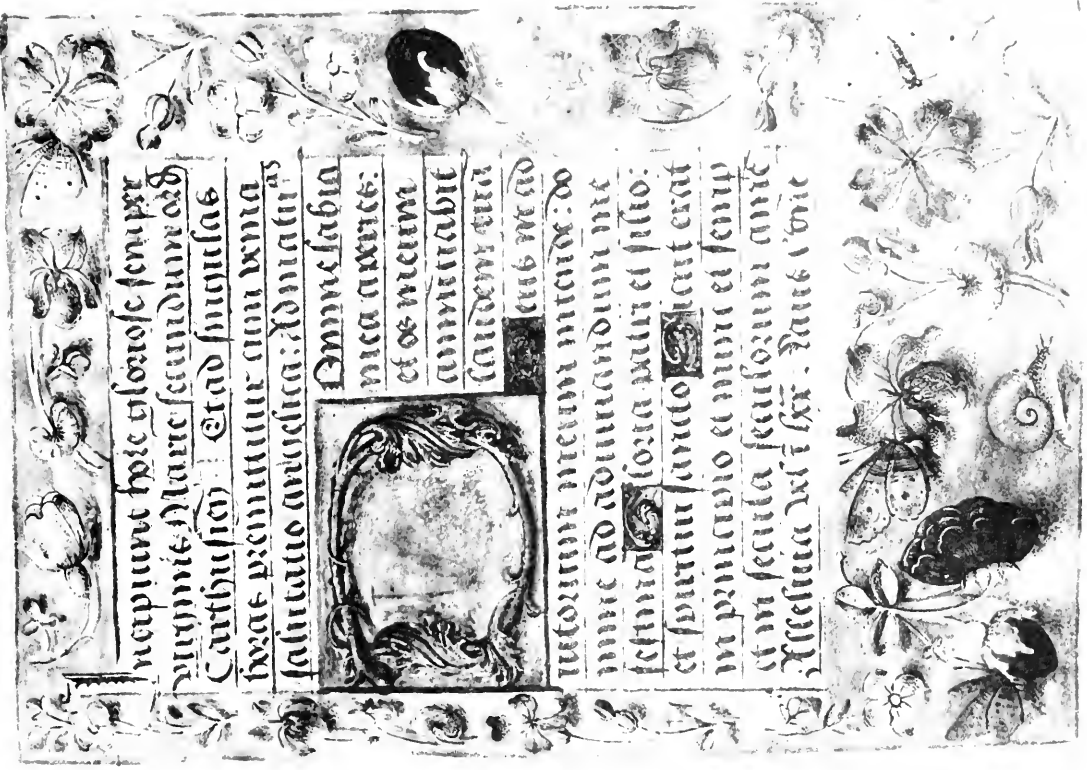 Incipiunt hore gloriose semper
virginis Marie secundum ordinē
Carthusieñ Et ad singulas
horas premittitur cum venia
salutatio angelica: Ad matuti
nas
Domine labia
mea aperies:
et os meum
annunciabit
laudem tuā
Deus in ad
iutorium meum intende: Do
mine ad adiuuandum me
festina Gloria patri et filio:
et spiritui sancto Sicut erat
in principio et nunc et semp
et in secula seculorum amē
Alleluia vel lxx